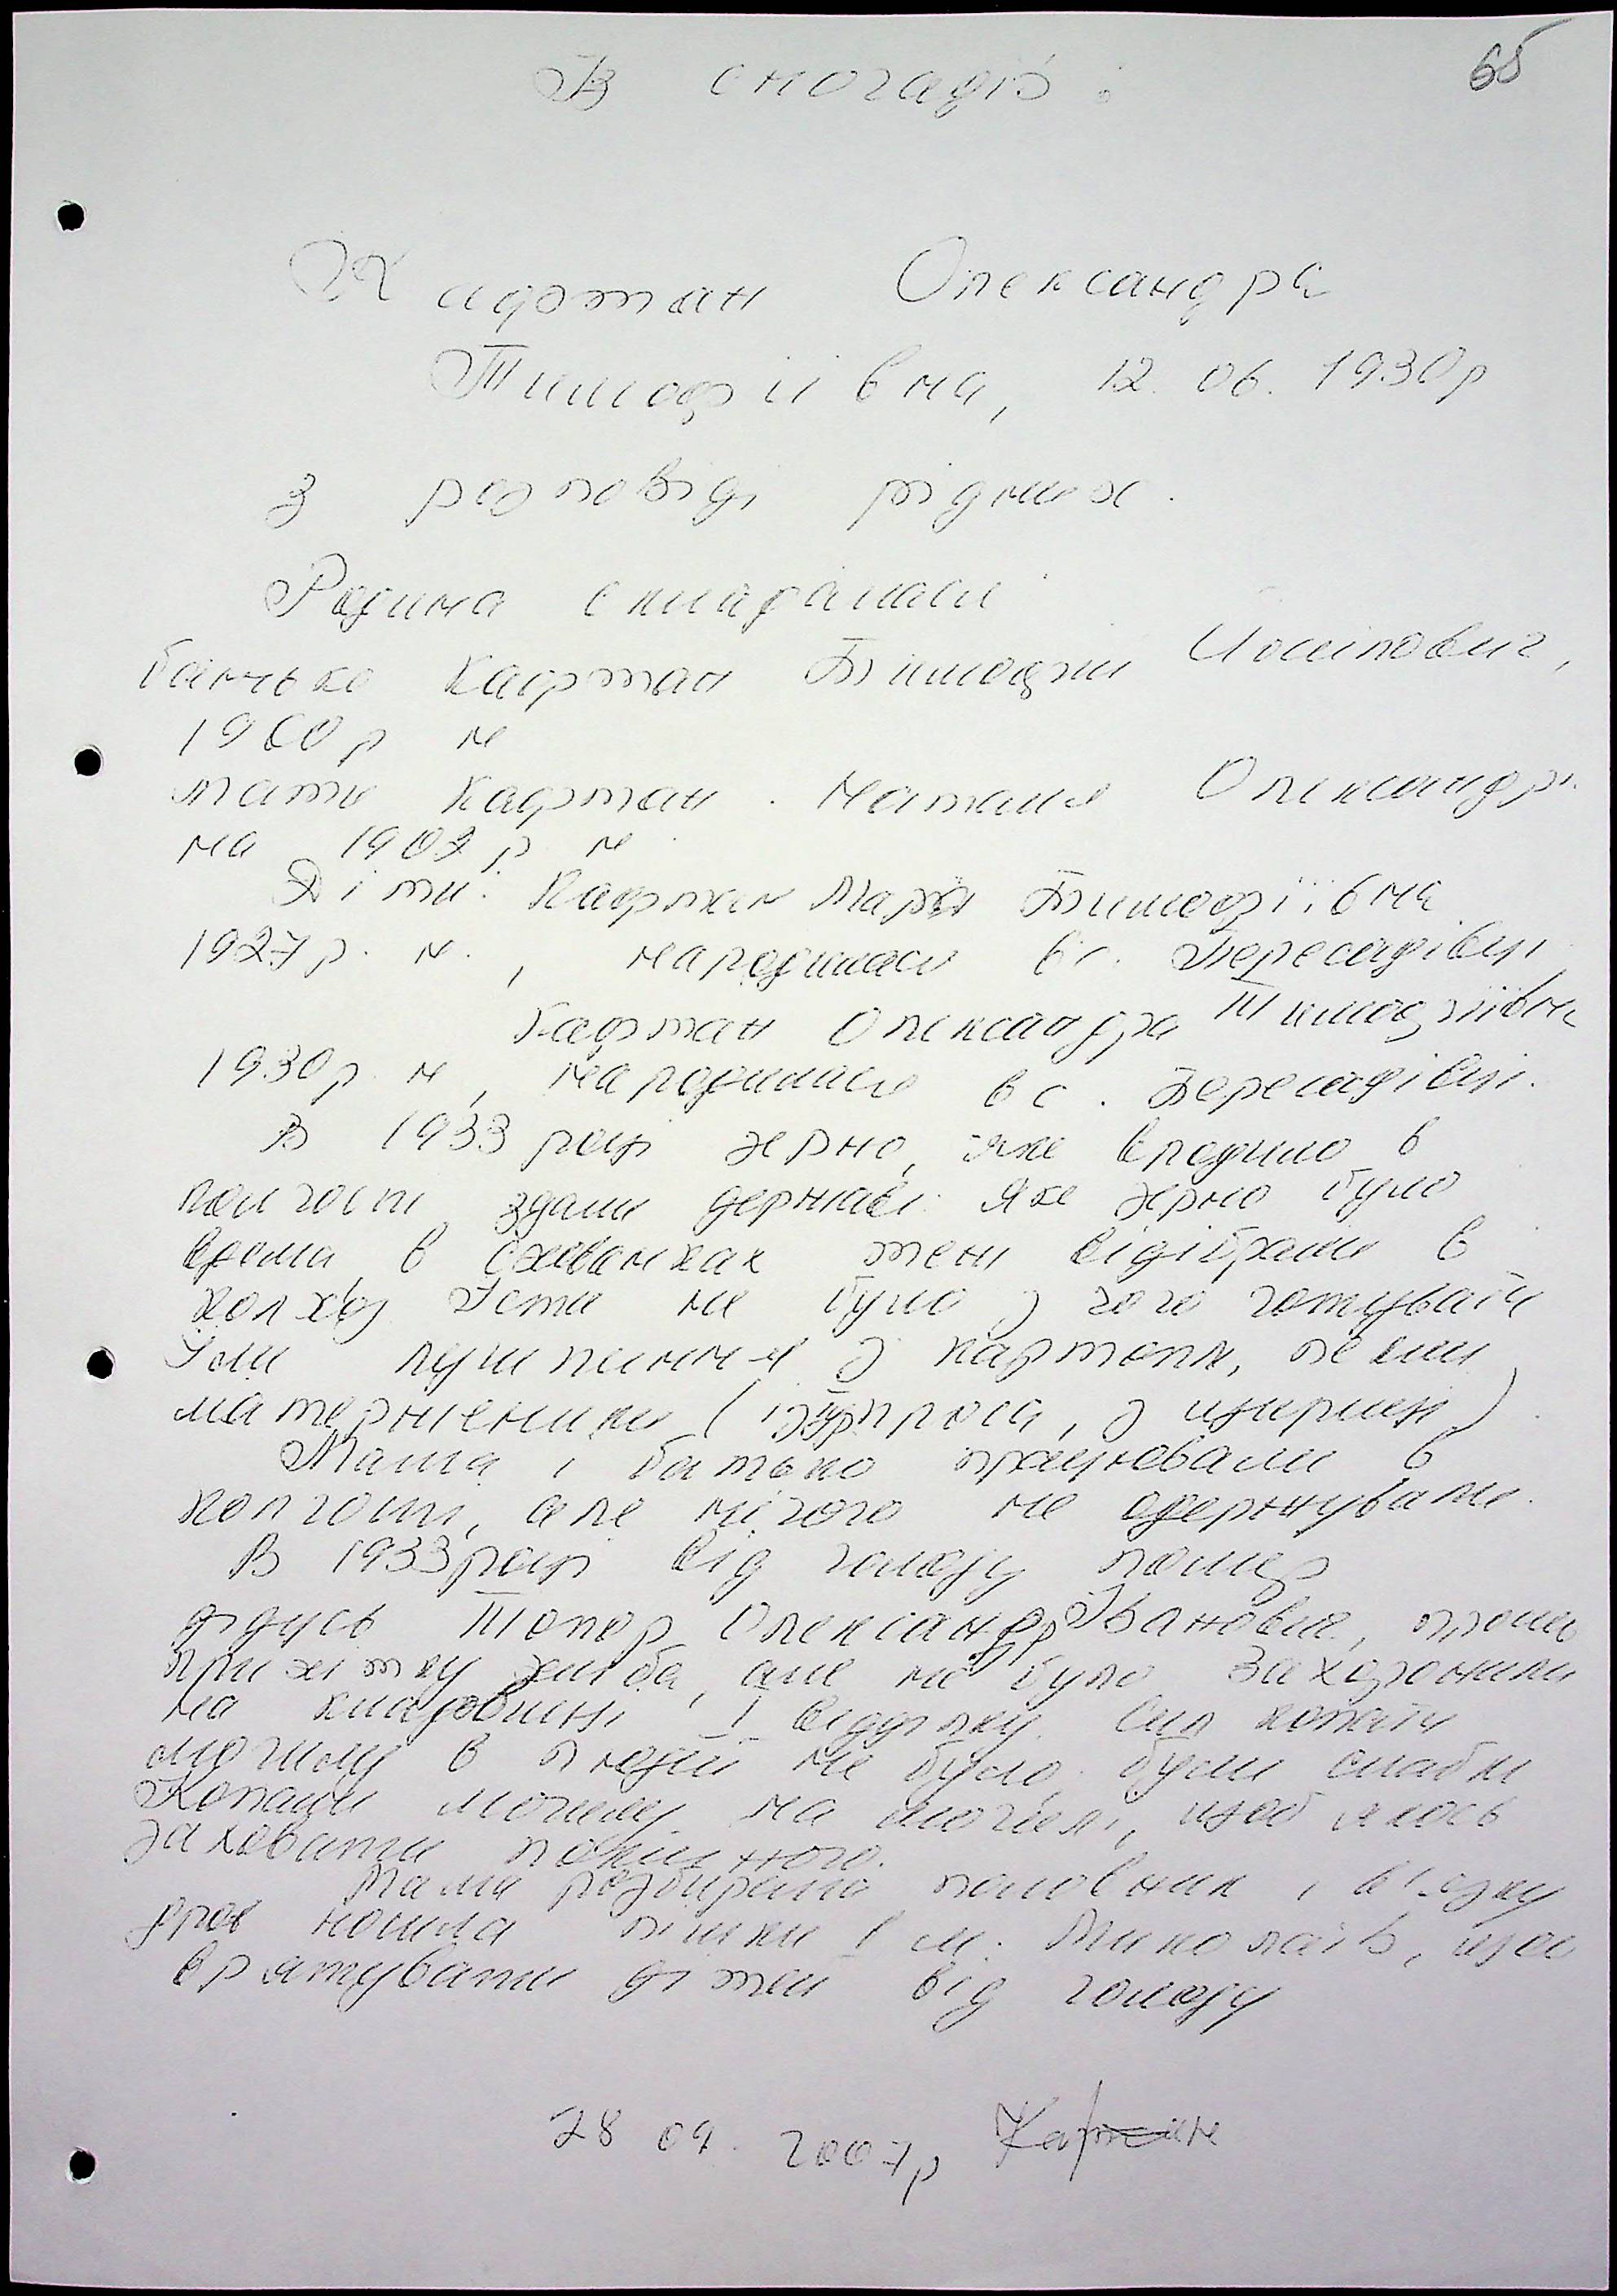 Зі спогадів:
65
Кафтан Олександра
Тимофіївна, 12. 06. 1930р
з розповіді рідних.
Родина складалась
батько Кафтан Тимофій Йосипович,
1900р н
мати Кафтан Наталія Олександрів
на 1902 р н
Діти: Кафтан Марія Тимофіївна
1927р. н., народилась в с. Пересадівці
Кафтан Олександра Тимофіївна
1930р н, народилась в с. Пересадівці.
В 1933 році зерно, яке вродило в
колгоспі здали державі. Яке зерно було
вдома, в схованках теж відібрали в
колхоз. Їсти не було з чого готувати
Їли лушпиння з картоплі, пекли
маторженики (із проса, з щириці)
Мама і батько працювали в
колгоспі, але нічого не одержували.
В 1933році від голоду помер
дідусь Топор Олександр Іванович, просив
крихітку хліба, але не було. Захоронили
на кладовищі І відділку. Сил копати
могилу в людей не було, були слабкі
Копали могилу на могилі, щоб якось
заховати покійного.
Мама розбирала половник і в'язку
дров носила пішки в м. Миколаїв, щоб
врятувати дітей від голоду
28 09. 2007р Кафтан